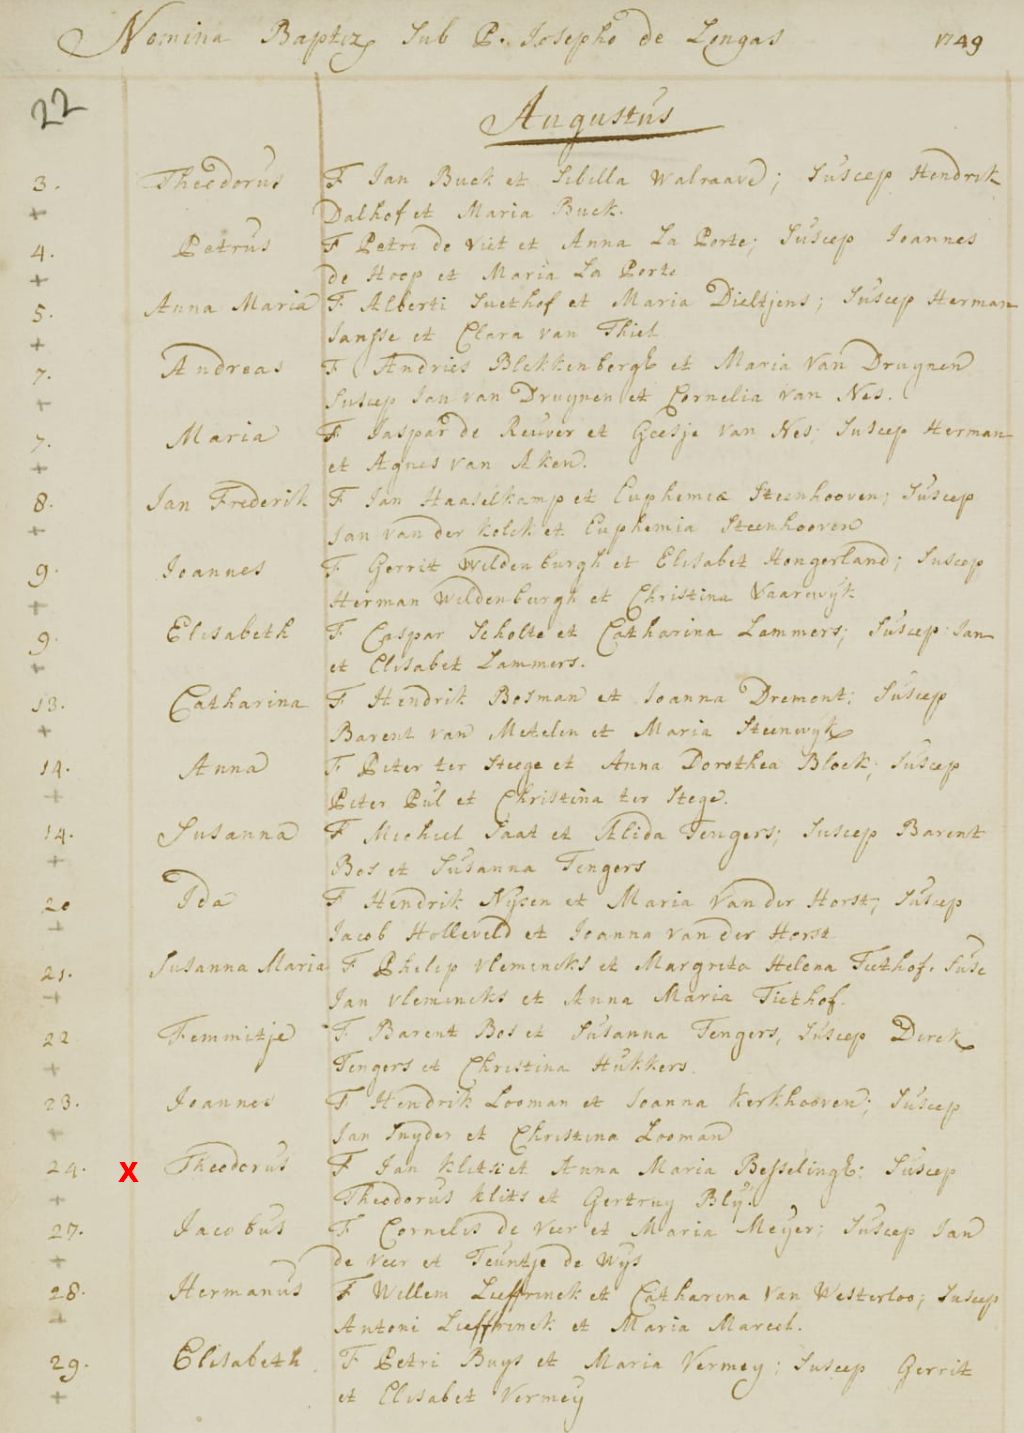 Nomina Baptiz sub P. Josepho de Longas 1749
22
Augustus
3. Theodorus F Jan Buck et Sibilla Walraave; Suscep Hendrik
+ Dalhof et Maria Buck.
4. Petrus F Petri de Viet et Anna La Porte; Suscep Joannes
+ de Hoop et Maria La Porte
5. Anna Maria F Alberti Suethof et Maria Dieltjens; Suscep Herman
+ Jansse et Clara van Thiel
7. Andreas F Andries Blekkenbergh et Maria van Drugnen
+ Suscep Jan van Drugnen et Cornelia van Nes.
7. Maria F Jaspar de Reuver et Geesje van Nes; Suscep Herman
+ et Agnes van Aken.
8. Jan Frederik F Jan Haaselkamp et Euphemia Steenhooven; Suscep
+ Jan van der kolck et Euphemia Steenhooven
9. Joannes F Gerrit Wildenburgh et Elisabet Hongerland; Suscep
+ Herman Wildenburgh et Christina Vaarwyk
9. Elisabeth F Caspar Scholte et Catharina Lammers; Suscep Jan
+ et Elisabet Lammers.
13. Catharina F Hendrik Bosman et Joanna Dremont; Suscep
+ Barent van Metelen et Maria Steenwyk
14. Anna F Peter ter Stege et Anna Dorothea Block; Suscep
+ Peter Pul et Christina ter Stege.
14. Susanna F Michiel Saat et Alida Tengers; Suscep Barent
+ Bos et Susanna Tengers
20 Ida F Hendrik Nysen et Maria van der Horst; Suscep
+ Jacob Holleveld et Joanna van der Horst
21. Susanna Maria F Philip Vlemincks et Margreta Helena Tiethof. Susc
+ Jan Vlemincks et Anna Maria Tiethof.
22 Femmitje F Barent Bos et Susanna Tengers, Suscep Derck
+ Tengers et Christina Hukkers.
23. Joannes F Hendrik Looman et Joanna Kerkhooven; Suscep
+ Jan Snyder et Christina Looman
24. X Theodorus F Jan klits et Anna Maria Besselingh: Suscep
+ Theodorus klits et Gertruy Bly.
27. Jacobus F Cornelis de Veer et Maria Meyer; Suscep Jan
+ de Veer et Teuntje de Wys
28. Hermanus F Willem Lieffrinck et Catharina van Westerloo; Suscep
+ Antoni Lieffrinck et Maria Marcel.
29. Elisabeth F Petri Buys et Maria Vermey; Suscep Gerrit
+ et Elisabet Vermey